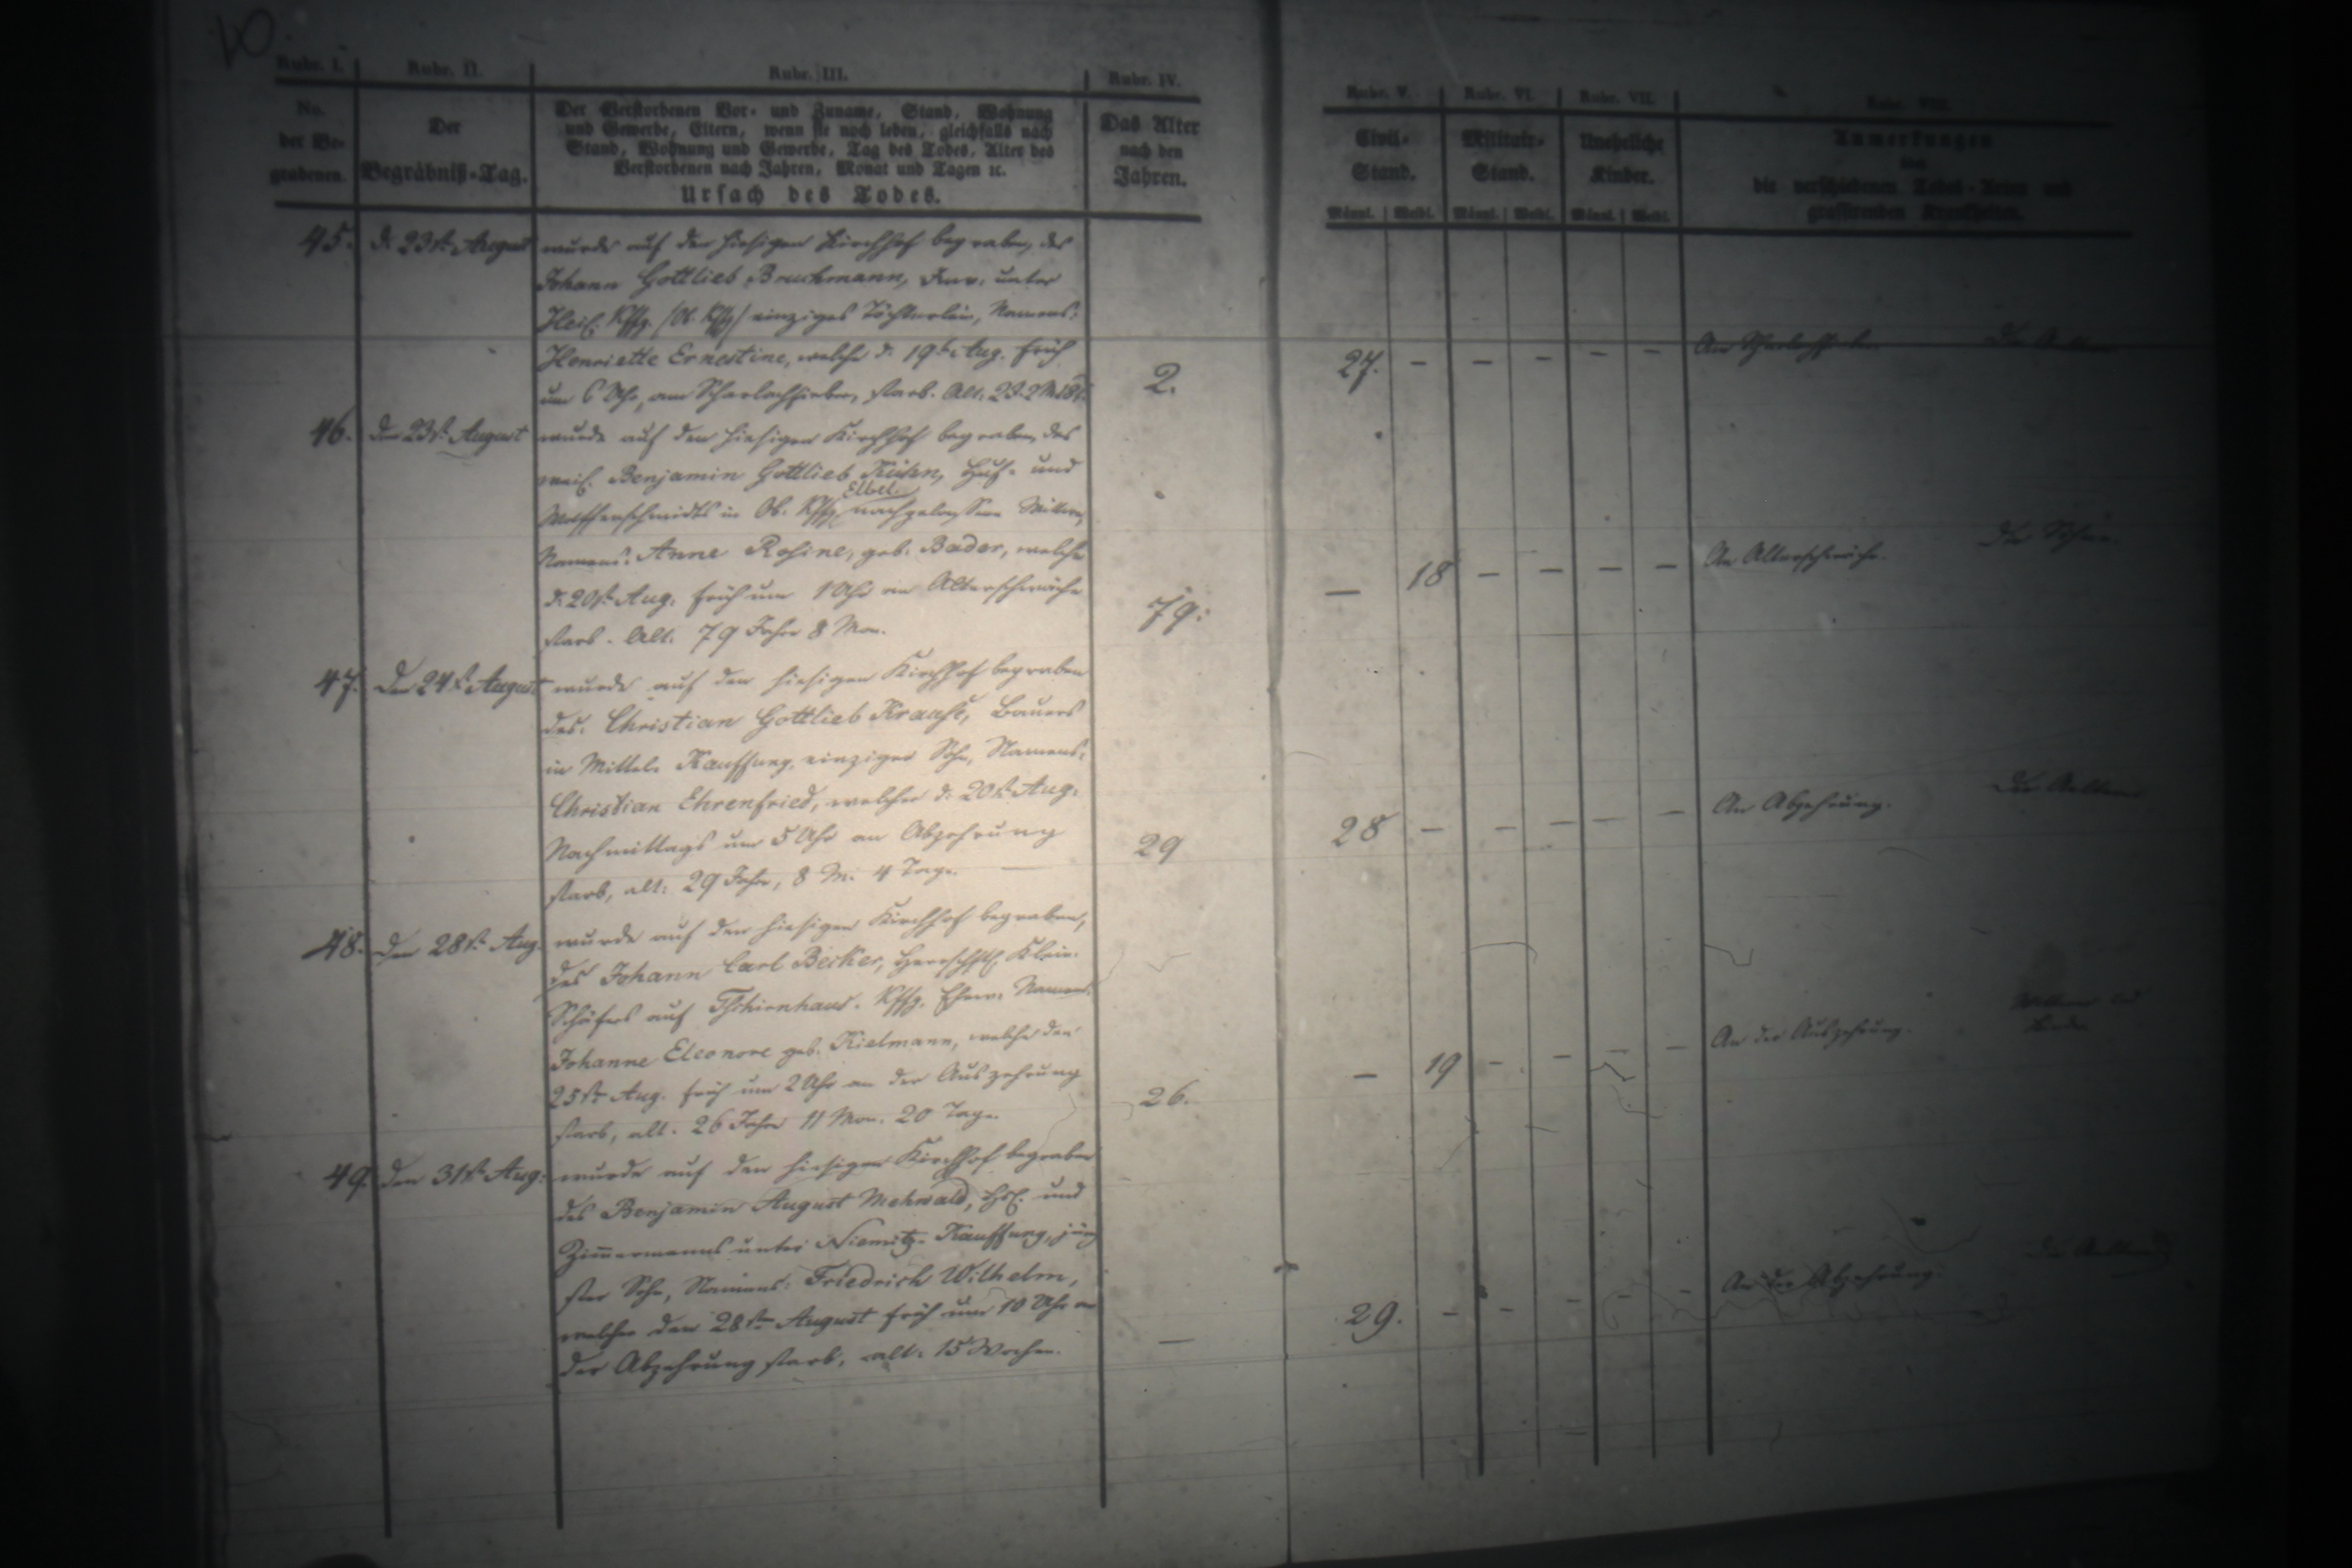 Rubr. I. Rubr. II. Rubr. III. Rubr. IV. Rubr. V. Rubr. VI. Rubr. VII. Rubr. VIII.
No. der Be- grabenen.
Der Begräbniß-Tag.
Der Verstorbenen Vor- und Zuname, Stand, Wohnung
und Gewerbe, Eltern, wenn sie noch leben, gleichfalls nach
Stand, Wohnung und Gewerbe, Tag des Todes, Alter des
Verstorbenen nach Jahren, Monat und Tagen ꝛc.
Ursach des Todes.
Das Alter
nach den
Jahren.
Civil-
Stand.
Militair-
Stand.
Uneheliche
Kinder.
Anmerkungen
über
die verschiedenen Todes-Arten und
grassirenden Krankheiten.
Männl. Weibl. Männl. Weibl. Männl. Weibl.
45. d. 23st. August wurde auf den hiesigen Kirchhof begraben, des
Johann Gottlieb Bruchmann, unter
Kffg. einziges Töchterlein, Namens:
Henriette Ernestine, welche d. 19t Aug. früh
um 6 Uhr, am Scharlachfieber, starb. Alt. 2 J. 2 M.
2. 27. – – – – – Am
46. Den 23st. August wurde auf den hiesigen Kirchhof begraben, des
weil. Benjamin Gottlieb Kühn, Huf- und
Waffenschmidts in Ob. Kffg. Elbel. nachgelassene Wittwe,
Namens: Anne Rosine, geb. Bader, welche
d. 20st. Aug. früh um 1 Uhr an Altersschwäche
starb. Alt. 79 Jahr 8 Mon.
79. – 18 – – – – An Altersschwäche.
47. Den 24st. August wurde auf den hiesigen Kirchhof begraben
des Christian Gottlieb Krause, Bauers
in Mittel- Kauffung, einziger Sohn, Namens:
Christian Ehrenfried, welcher d. 20st. Aug.
Nachmittags um 5 Uhr an Abzehrung
starb, alt: 29 Jahr, 8 M. 4 Tage.
29 28 – – – – – An Abzehrung.
48. Den 28st. Aug. wurde auf den hiesigen Kirchhof begraben,
des Johann Carl Becker, Herrschftl. Klein-
Schäfers auf Tschirnhaus- Kffg. Ehew. Namens:
Johanne Eleonore geb. Kielmann, welche den
25st. Aug. früh um 2 Uhr an der Auszehrung
starb, alt. 26 Jahr 11 Mon. 20 Tage.
26. – 19 – – – – An der Auszehrung.
49. Den 31st. Aug. wurde auf den hiesigen Kirchhof begraben
des Benjamin August Mehwald, und
Zimmermanns unter Niemitz- Kauffung, jüng
ster Sohn, Namens: Friedrich Wilhelm,
welcher den 28sten August früh um 10 Uhr an
der Abzehrung starb, alt: 15 Wochen.
– 29. – – – – – An der Abzehrung.